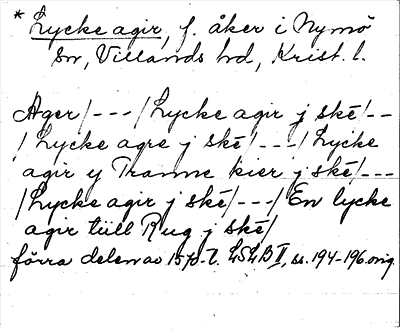 * Lycke agir, f. åker i Nymö
sn, Villands hd, Krist. l.
Ager/---/Lycke agir j skē/--
/Lycke agre j skē/---/Lycke
agir y Tranne kier j skē/---
/Lycke agir j skē/---/En lycke
agir tüll Rug j skē/
förra delen av 1570-t. LSLB II, ss. 194-196 orig.